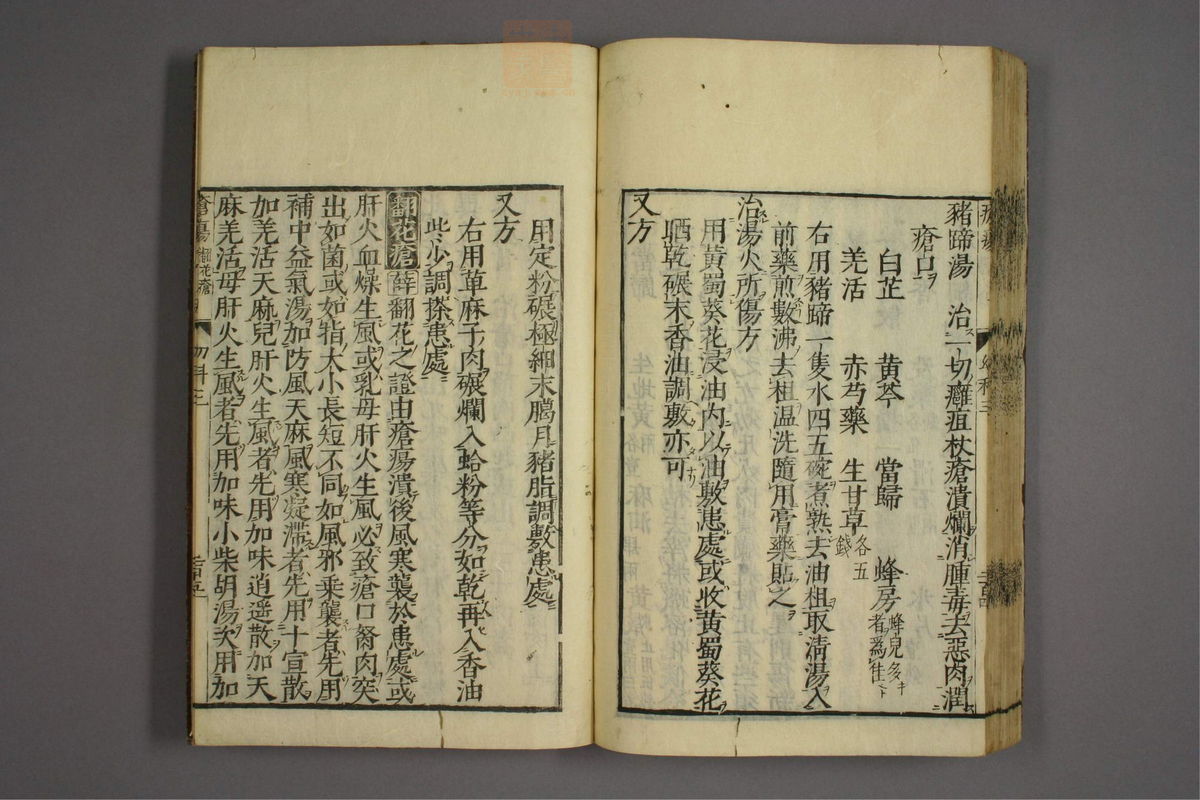 豬蹄湯　治一切癰疽杖瘡潰爛消腫毒去惡肉潤
瘡口
白芷　黄芩　當歸　蜂房蜂兒多者爲佳
羌活　赤芍藥　生甘草各五錢
右用豬蹄一隻水四五碗煮熟去油柤取清湯入
前藥煎數沸去柤温洗隨用膏藥貼之
治湯火所傷方
用黄蜀葵花浸油内以油敷患處或收黄蜀葵花
晒乾碾末香油調敷亦可
又方
用定粉碾極細末臈月豬脂調敷患處
又方
右用萆麻子肉碾爛入蛤粉等分如乾再入香油
些少調搽患處
翻花瘡 薛 翻花之證由瘡瘍潰後風寒襲於患處或
肝火血燥生風或乳母肝火生風必致瘡口胬肉突
出如菌或如指大小長短不同如風邪乗襲者先用
補中益氣湯加防風天麻風寒凝滯者先用十宣散
加羌活天麻兒肝火生風者先用加味逍遥散加天
麻羌活母肝火生風者先用加味小柴胡湯次用加
瘡瘍 翻花瘡